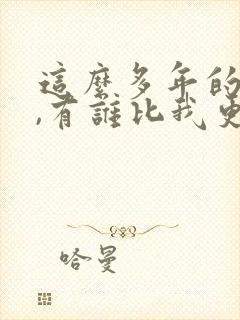 這麼多年的
,有誰比我更
哈曼